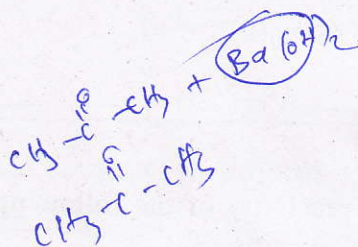 CH3 - C(=O) - CH3 + Ba(OH)2
CH3 - C(=O) - CH3